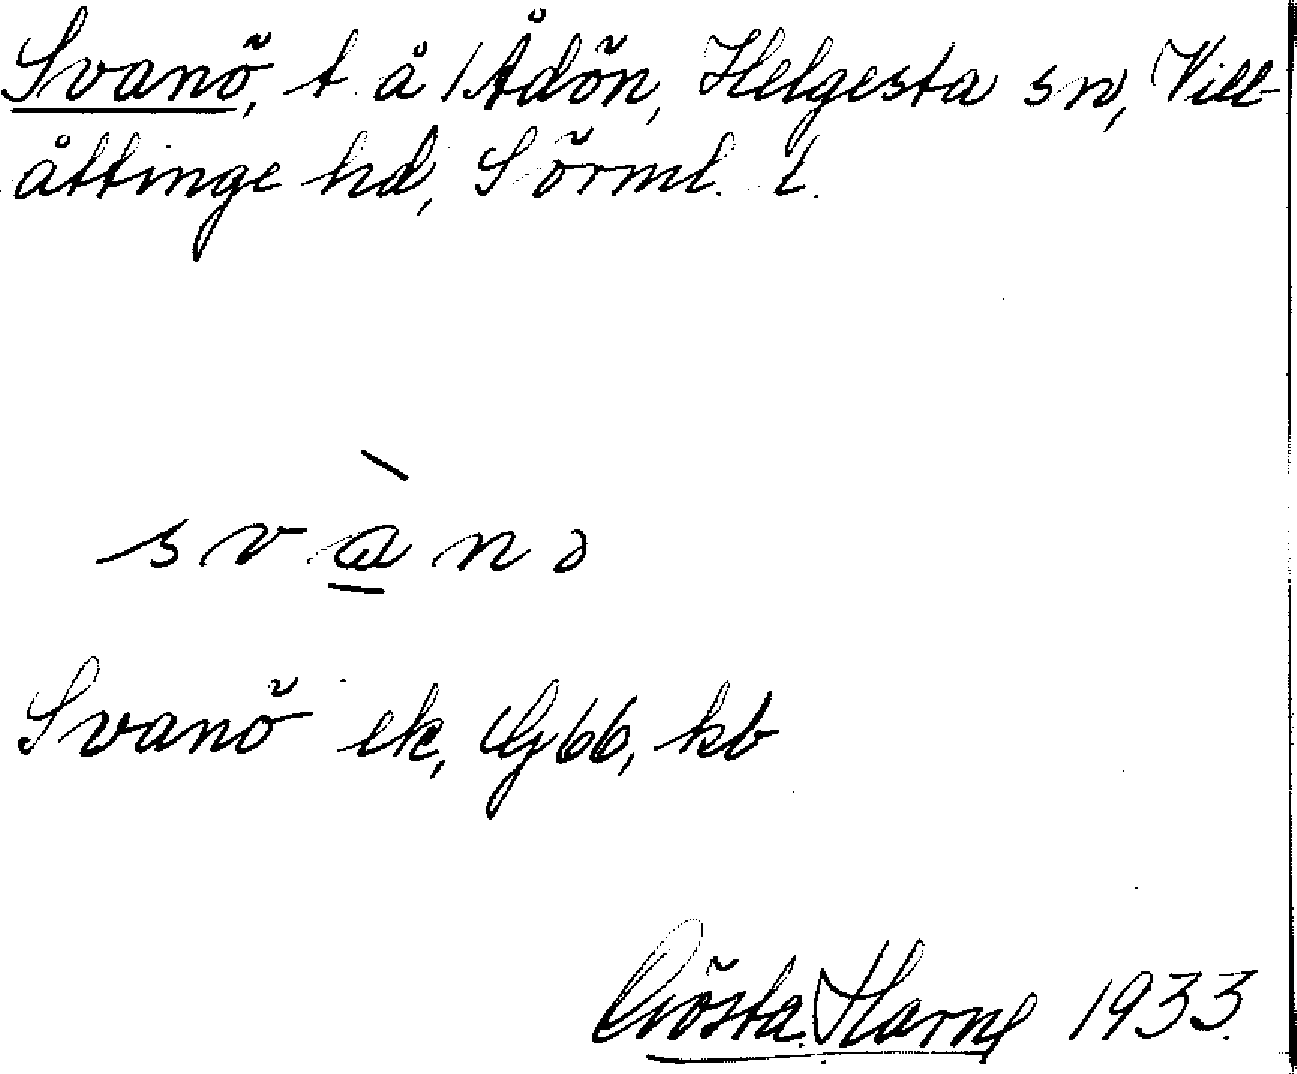 Svanö, t. å Ådön, Helgesta sn, Vill-
åttinge hd, Sörml. l.
svànə
Svanö ek, G66, kb
Gösta Harne 1933.